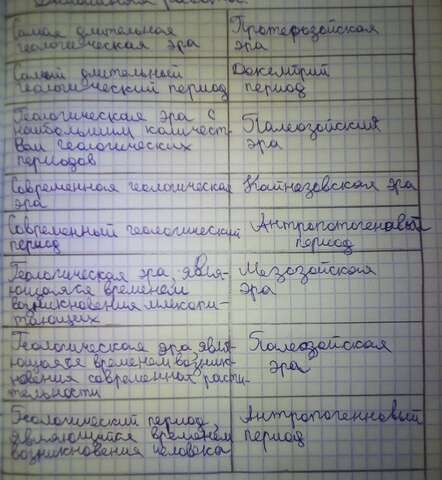 Самая длительная
геологическая эра
Протерозойская
эра
Самый длительный
геологический период
Докембрий
период
Геологическая эра с
наибольшим количест-
вом геологических
периодов
Палеозойский
эра
Современная геологическая
эра
Кайнозовская эра
Современный геологический
период
Антропогогеновый
период
Геологическая эра, явля-
ющаяся временем
возникновения млекопи-
тающих
Мезозойская
эра
Геологическая эра явля-
ющаяся временем возник-
новения современной расти-
тельности
Палеозойская
эра
Геологический период,
являющийся временем
возникновения человека
Антропогенновый
период